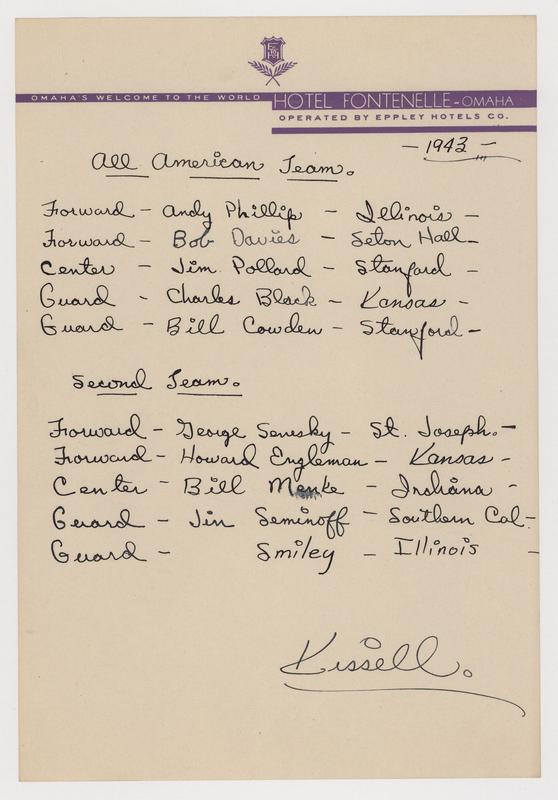 OMAHA'S WELCOME TO THE WORLD HOTEL FONTENELLE - OMAHA
OPERATED BY EPPLEY HOTELS CO.
- 1943 -
All American Team.
Forward - Andy Phillip - Illinois -
Forward - Bob Davies - Seton Hall -
Center - Jim Pollard - Stanford -
Guard - Charles Black - Kansas -
Guard - Bill Cowden - Stanford -
Second Team.
Forward - George Senesky - St. Joseph. -
Forward - Howard Engleman - Kansas -
Center - Bill Menke - Indiana -
Guard - Jim Seminoff - Southern Cal -
Guard - Smiley - Illinois -
Kissell.